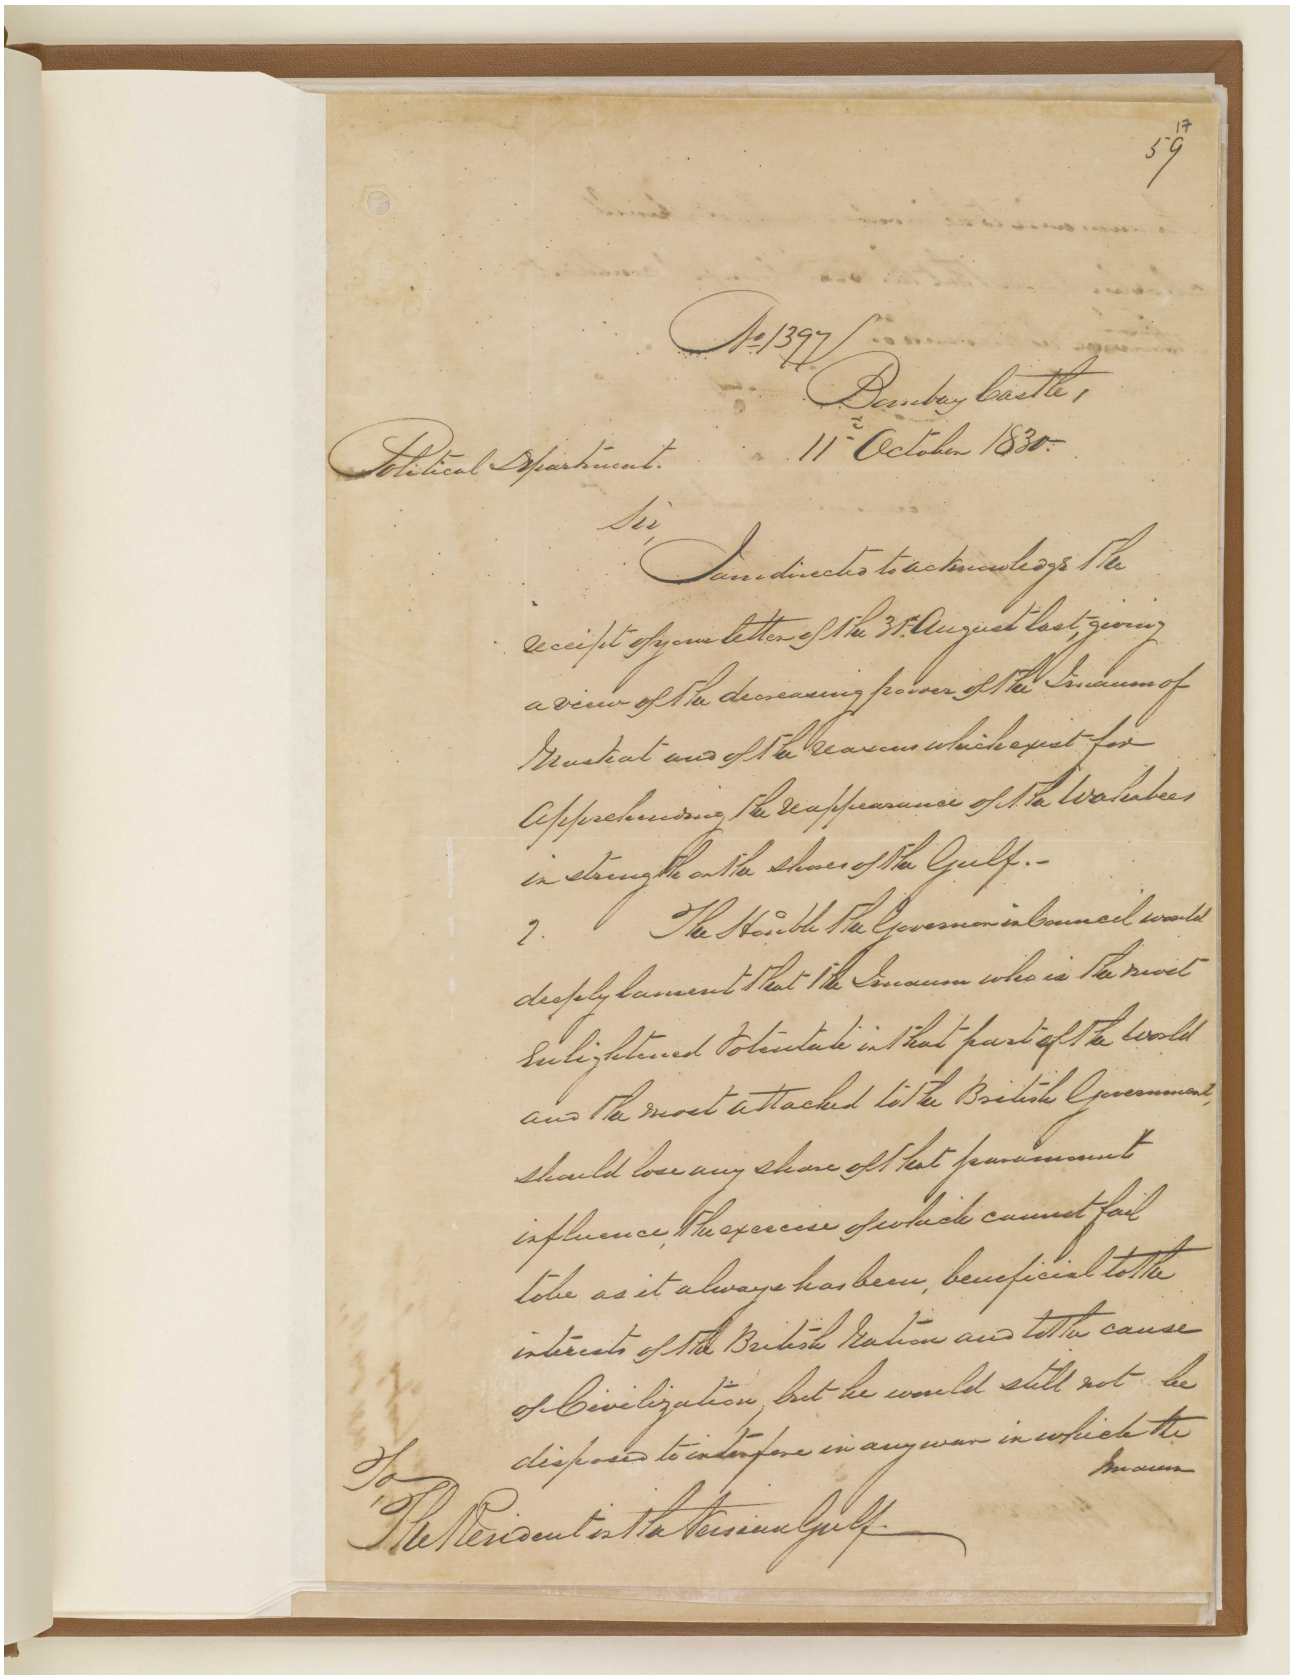 17
59
No. 1397
Bombay Castle,
11th October 1830.
Political Department.
Sir,
I am directed to acknowledge the
receipt of your letter of the 31st August last, giving
a view of the decreasing power of the Imaum of
Muskat and of the reasons which exist for
apprehending the reappearance of the Wahabees
in strength on the shores of the Gulf.-
2. The Honble the Governor in Council would
deeply lament that the Imaum who is the most
Enlightened Potentate in that part of the World
and the most attached to the British Government,
should lose any share of that paramount
influence, the exercise of which cannot fail
to be as it always has been, beneficial to the
interests of the British Nation and to the cause
of Civilization, but he would still not be
disposed to interfere in any war in which the
Imaum
To
The Resident in the Persian Gulf.